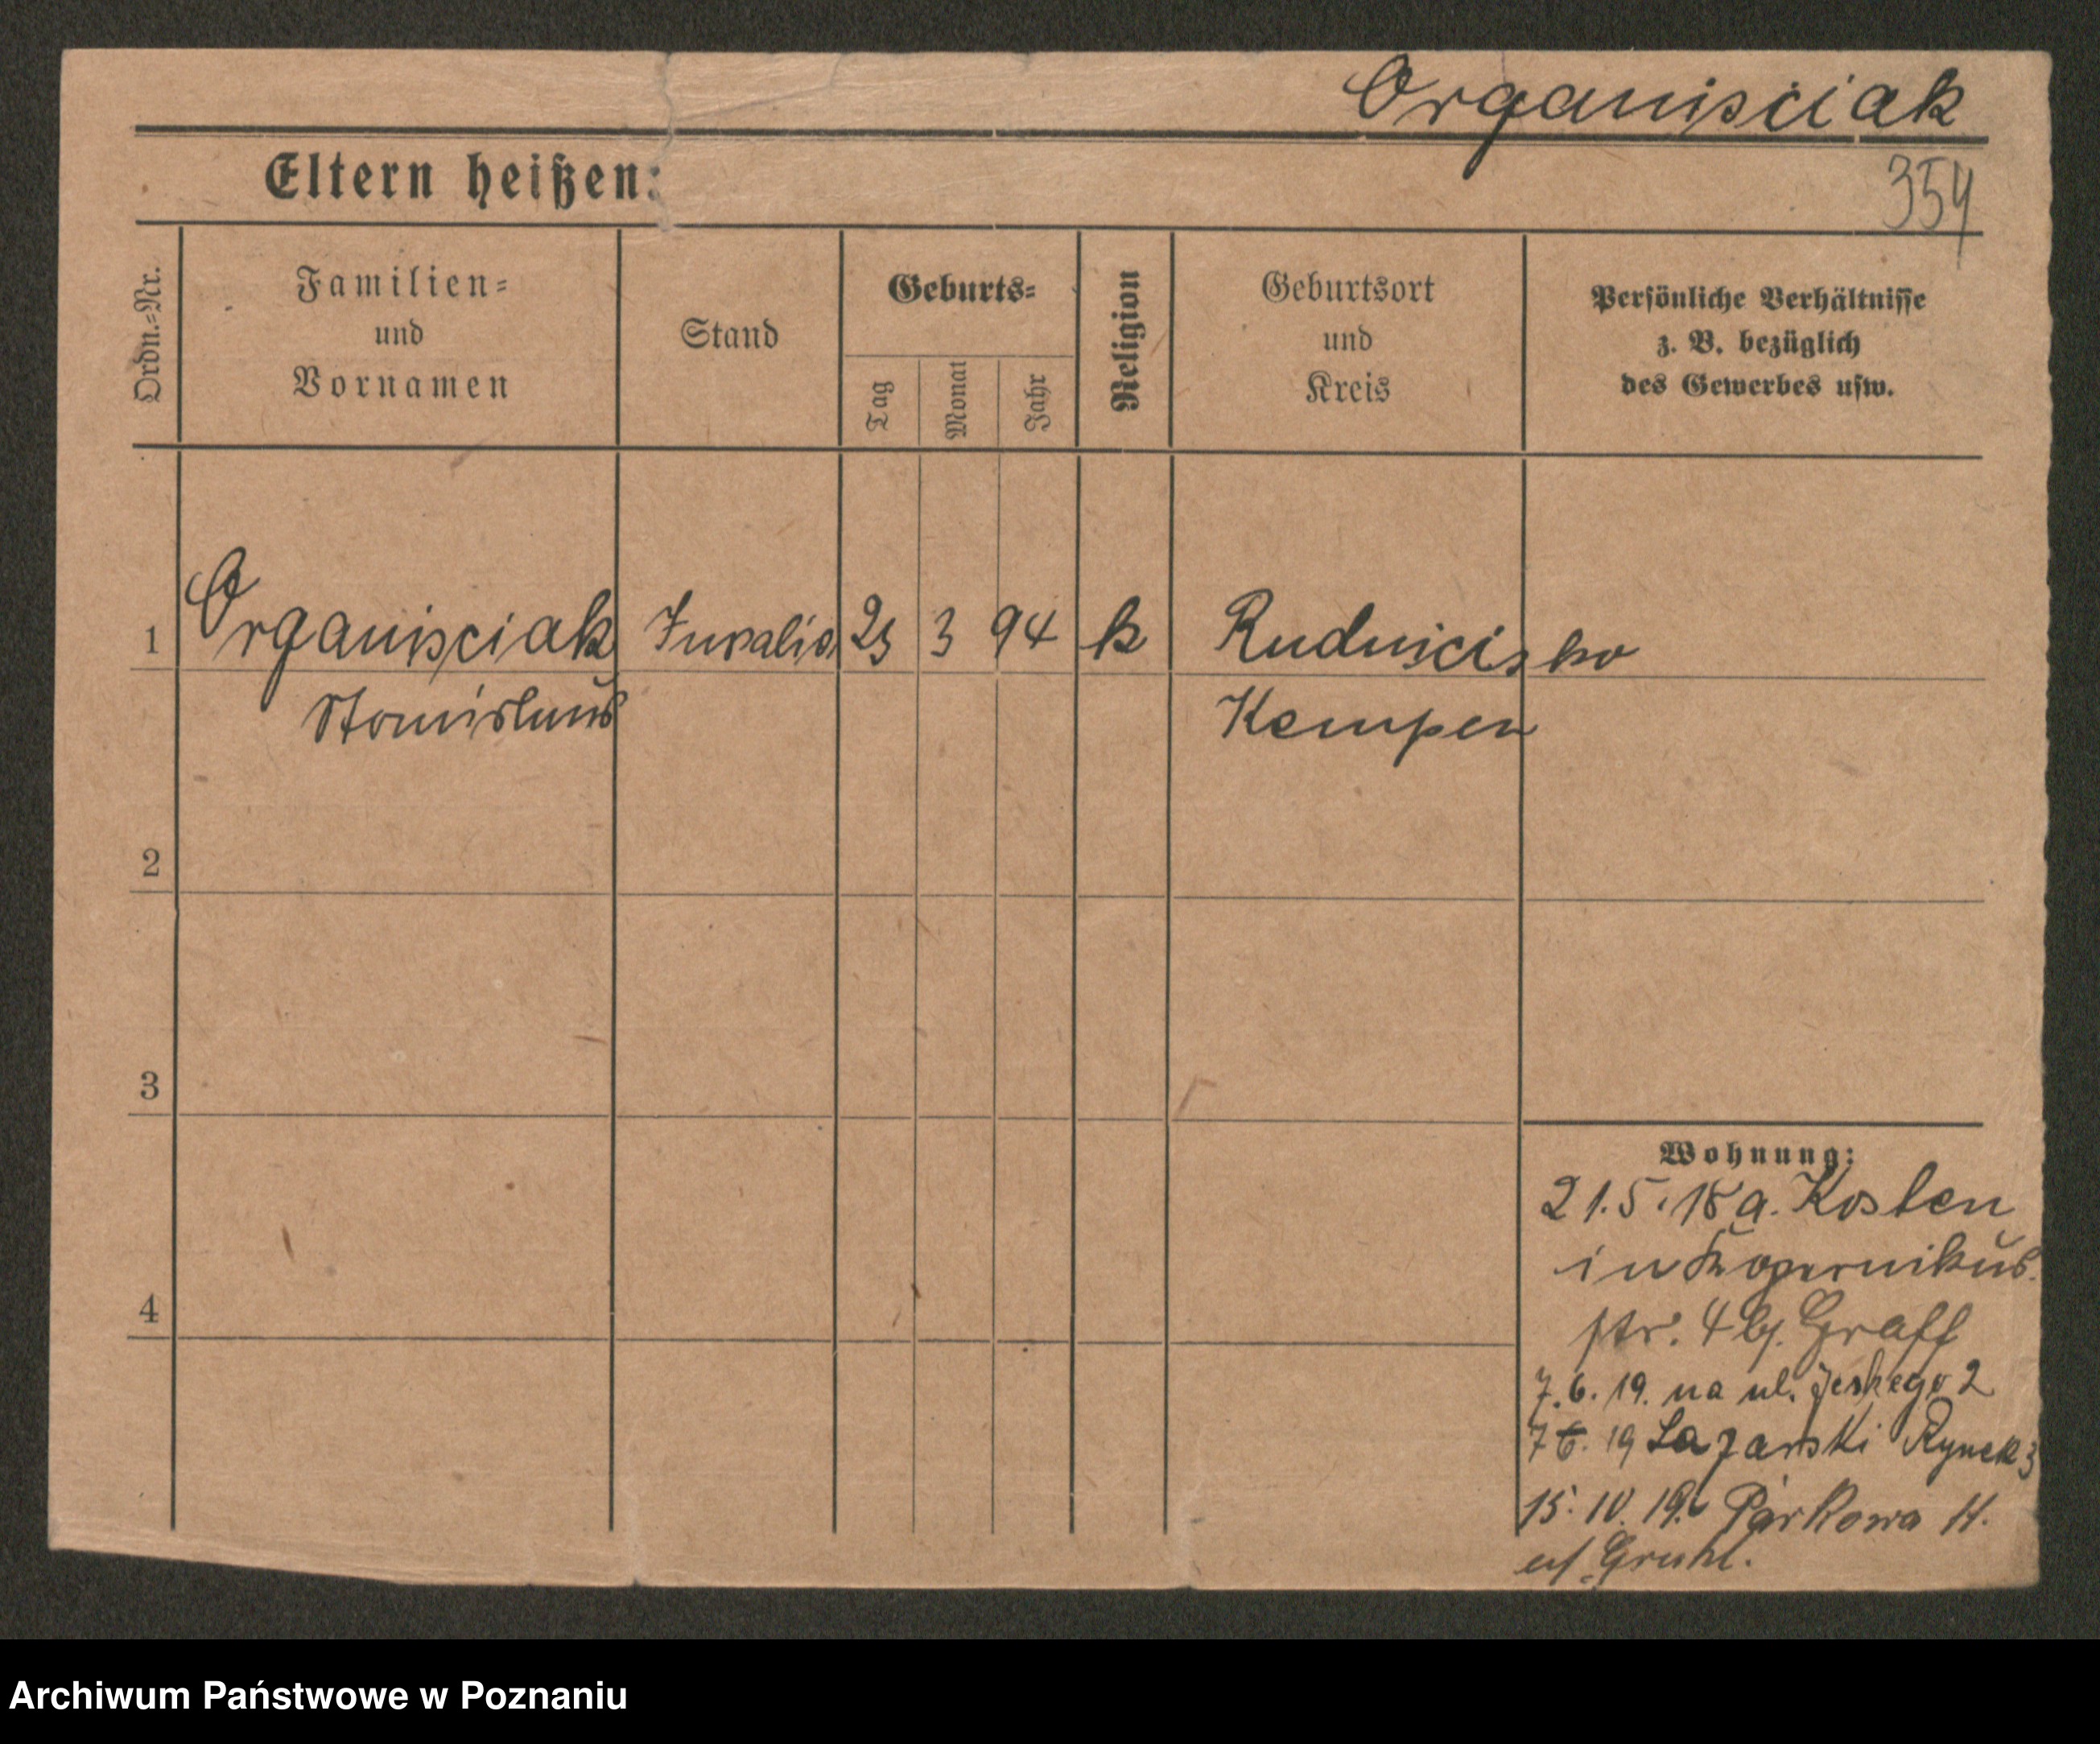 Organisciak
Eltern heißen:
354
Ordn.-Nr.
Familien-
und
Vornamen
Stand
Geburts-
Tag
Monat
Jahr
Religion
Geburtsort
und
Kreis
Persönliche Verhältnisse
z. B. bezüglich
des Gewerbes usw.
1
Organisciak
Invalid
25
3
94
k
Rudniscisko
Stanislaus
Kempen
2
3
4
Wohnung:
21.5.18 a. Kosten
in Kopernikus
str. 4 bj. Graff
7.6.19. na ul. Jeskego 2
7 6. 19 Lazarski Rynek 3
15. IV. 19. Parkowa 11.
Archiwum Państwowe w Poznaniu